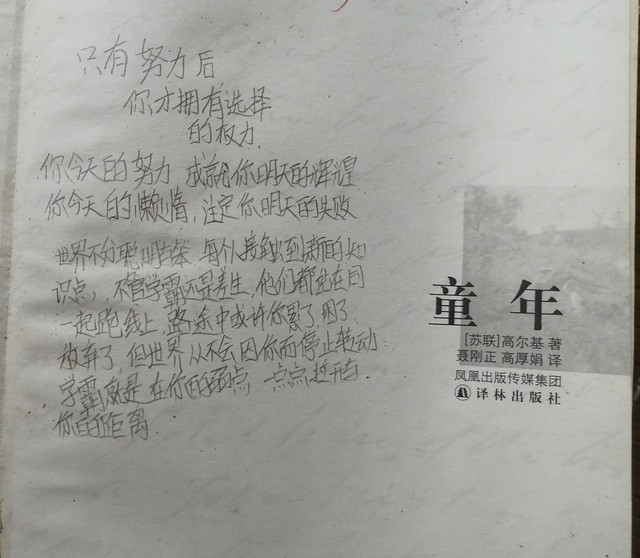 只有努力后
你才拥有选择
的权力.
你今天的努力 成就你明天的辉煌
你今天的懒惰,注定你明天的失败
世界不分聪明與笨.每个人接触到新的知
识点,不管学霸还是差生,他们都站在同
一起跑线上.路途中或许你累了困了
放弃了,但世界从不会因你而停止转动.
学霸就是在你的弱点 一点点拉开与
你的距离
童年
[苏联]高尔基 著
聂刚正 高厚娟 译
凤凰出版传媒集团
译林出版社